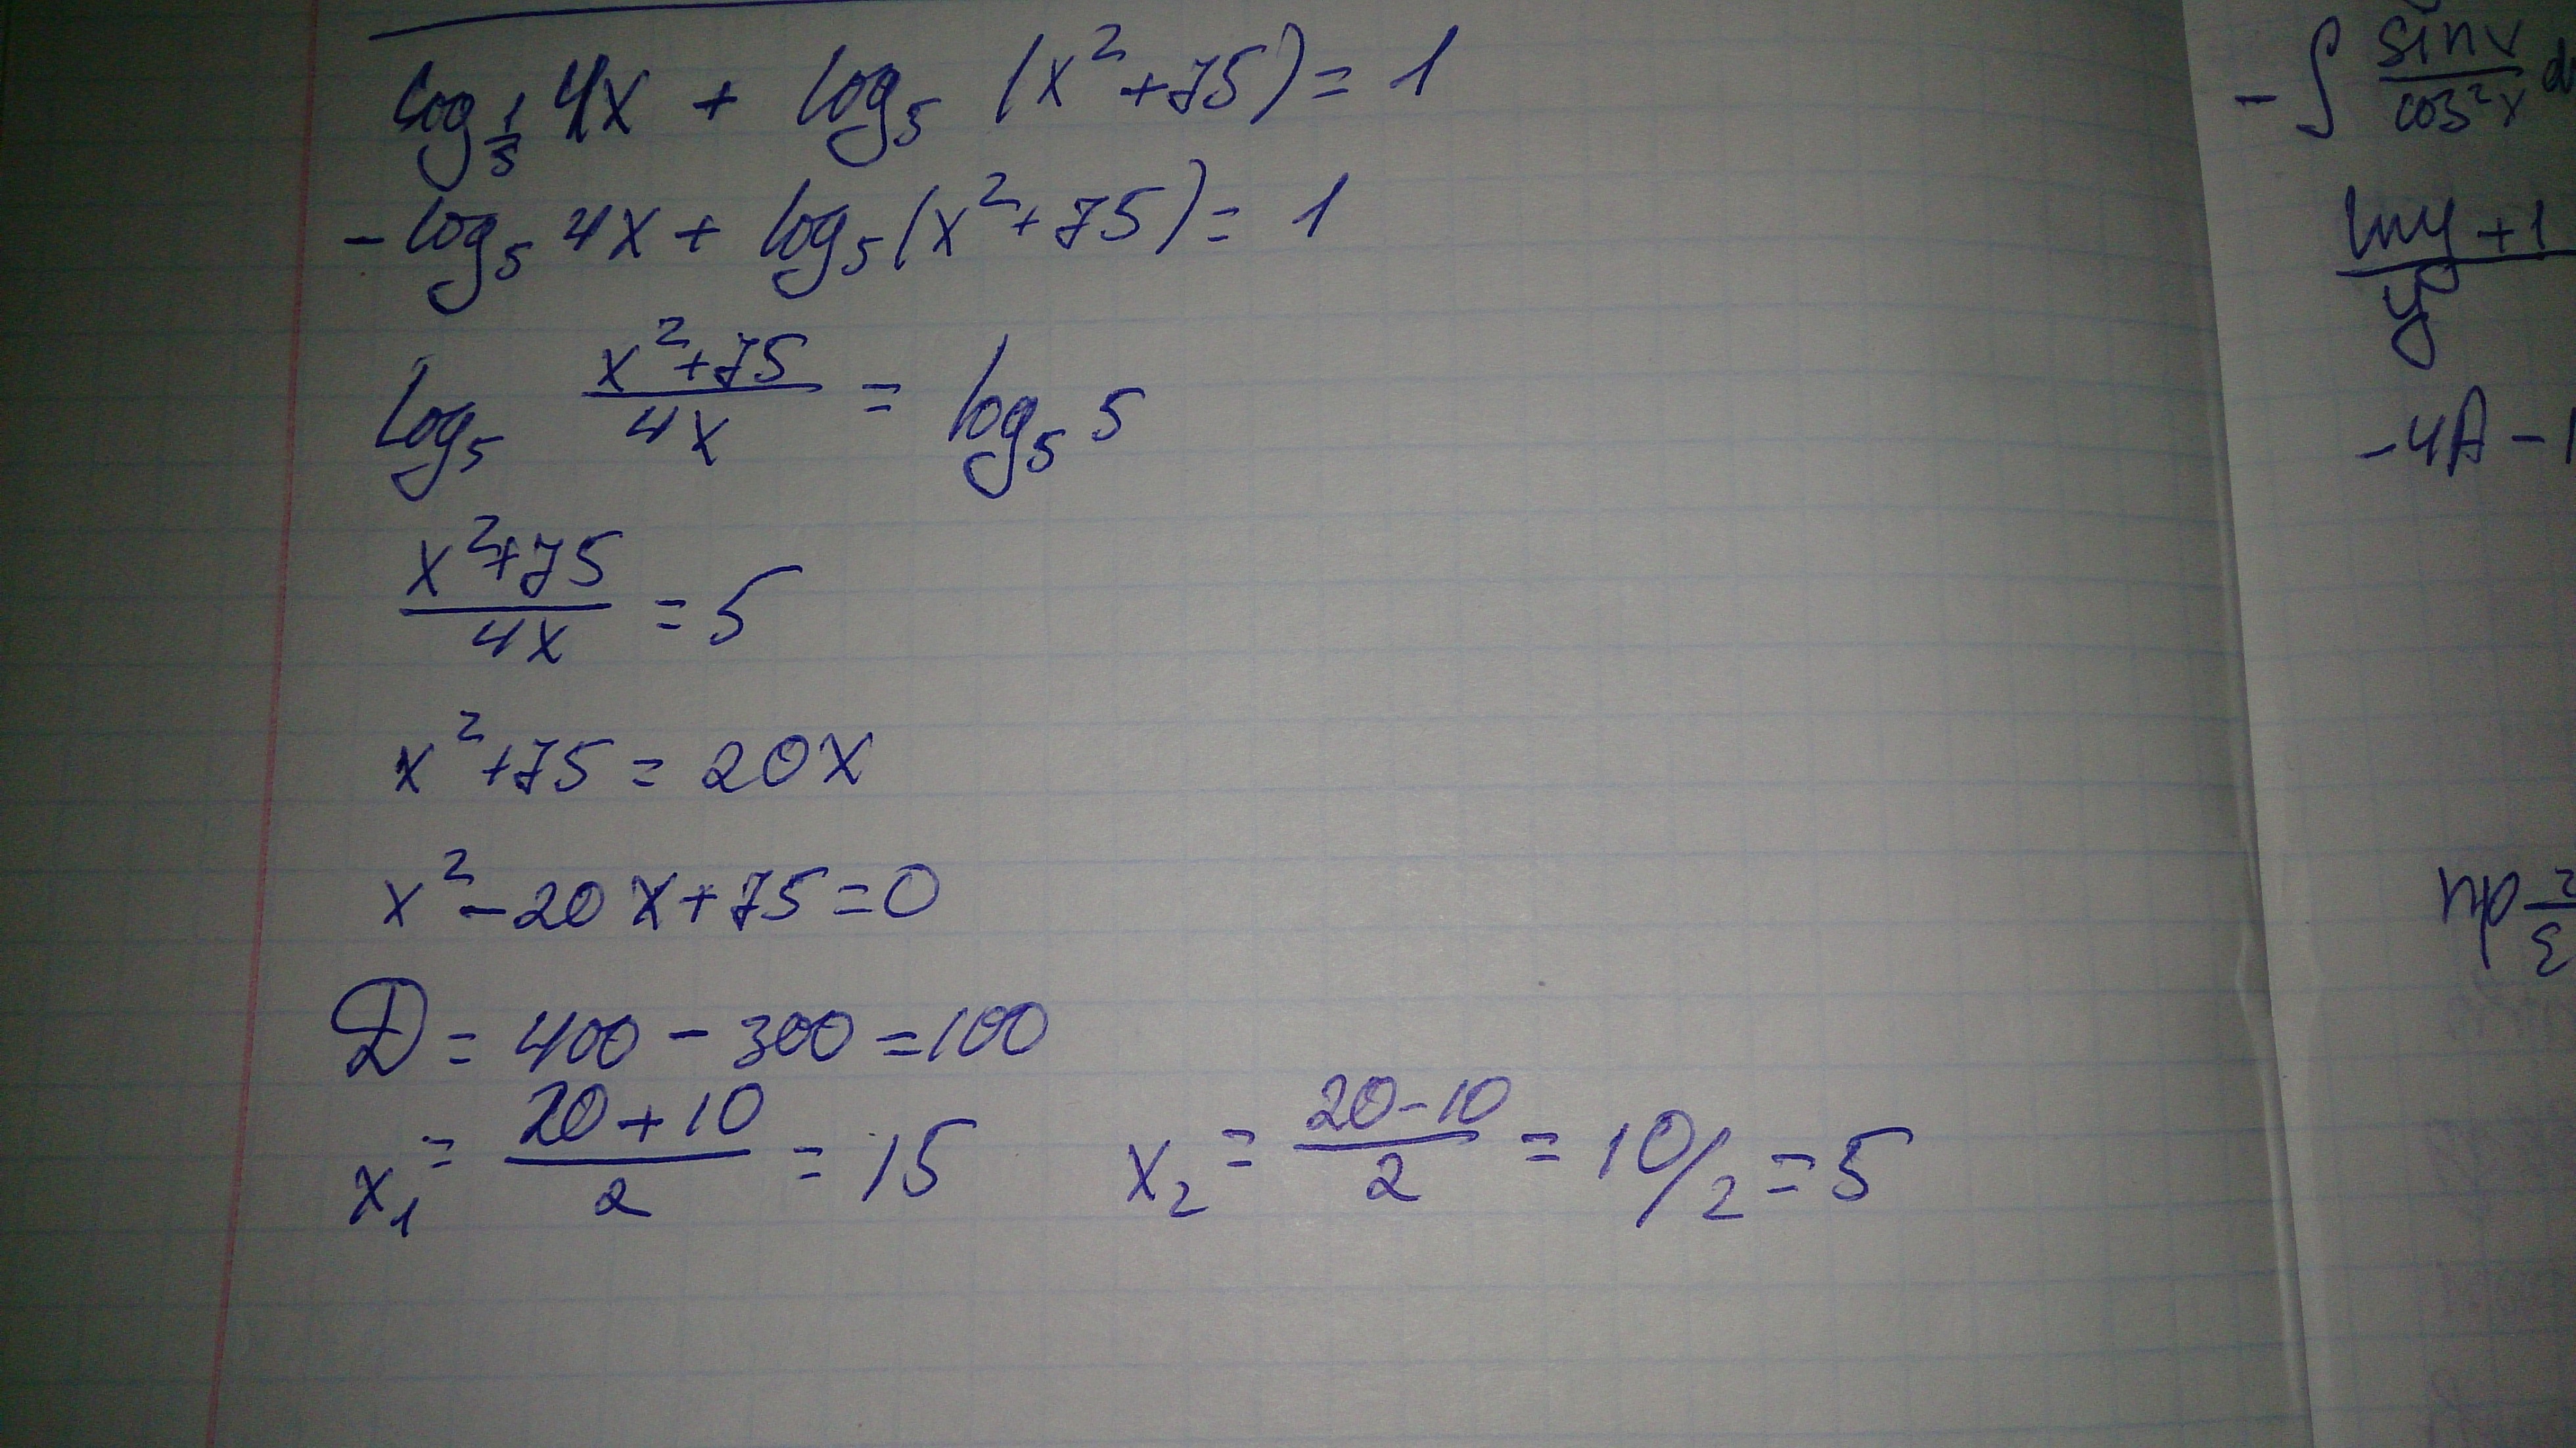 log_{1/5} 4x + log_5 (x² + 75) = 1
-log_5 4x + log_5 (x² + 75) = 1
log_5 (x² + 75)/(4x) = log_5 5
(x² + 75)/(4x) = 5
x² + 75 = 20x
x² - 20x + 75 = 0
D = 400 - 300 = 100
x_1 = (20 + 10)/2 = 15 x_2 = (20 - 10)/2 = 10/2 = 5
-∫ sin x/cos² x
ln y + 1
y
-4A -